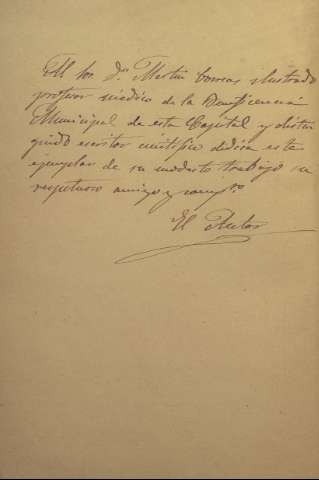 Al Sor. Dn. Martin Correas ilustrado
profesor médico de la Beneficencia
Municipal de esta Capital y distin
guido escritor científico dedica este
ejemplar de su modesto trabajo su
respetuoso amigo y comp.ro
El Autor